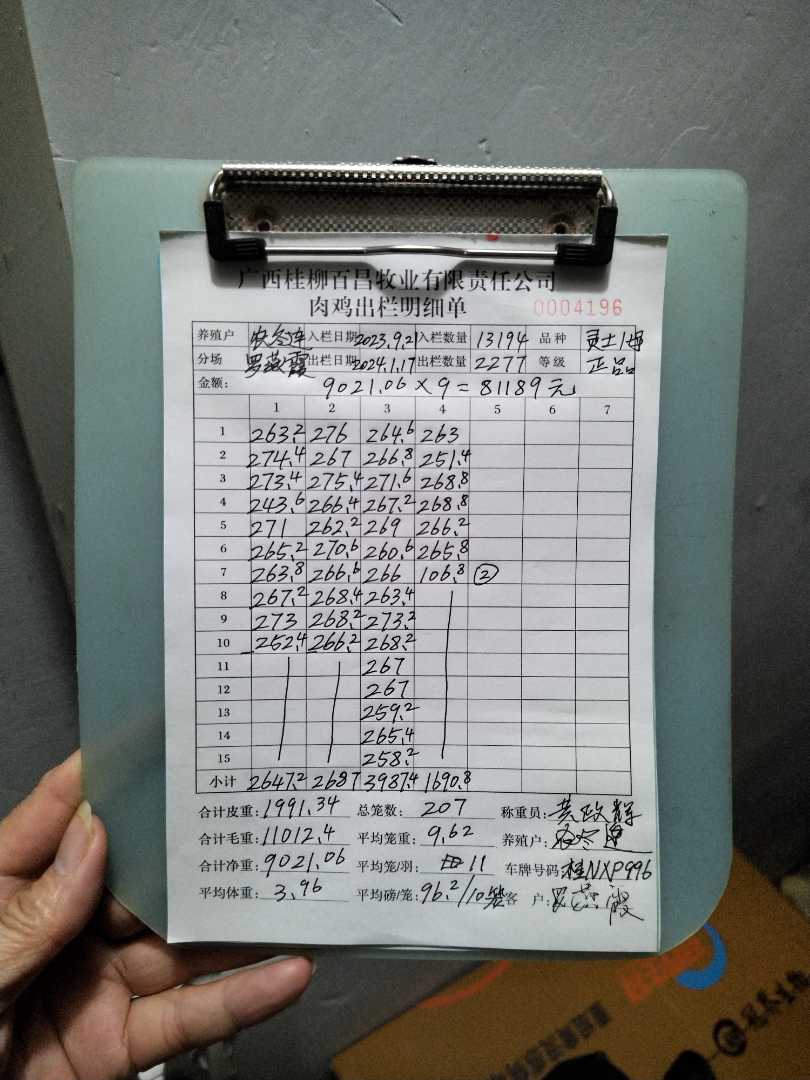 广西桂柳百昌牧业有限责任公司
肉鸡出栏明细单 0004196
养殖户 农冬连 入栏日期 2023.9.21 入栏数量 13194 品种 灵土1号
分场 罗燕霞 出栏日期 2024.1.17 出栏数量 2277 等级 正品
金额: 9021.06×9=81189元
1 2 3 4 5 6 7
1 263.2 276 264.6 263
2 274.4 267 266.8 251.4
3 273.4 275.4 271.6 268.8
4 243.6 266.4 267.2 268.8
5 271 262.2 269 266.2
6 265.2 270.6 260.6 265.8
7 263.8 266.6 266 106.8 ②
8 267.2 268.4 263.4
9 273 268.2 273.2
10 252.4 266.2 268.2
11 267
12 267
13 259.2
14 265.4
15 258.2
小计 2647.2 2687 3987.4 1690.8
合计皮重: 1991.34 总笼数: 207 称重员: 黄政辉
合计毛重: 11012.4 平均笼重: 9.62 养殖户:
合计净重: 9021.06 平均笼/羽: 11 车牌号码: 桂NXP996
平均体重: 3.96 平均磅/笼: 96.2/10笼 客 户: 罗燕霞